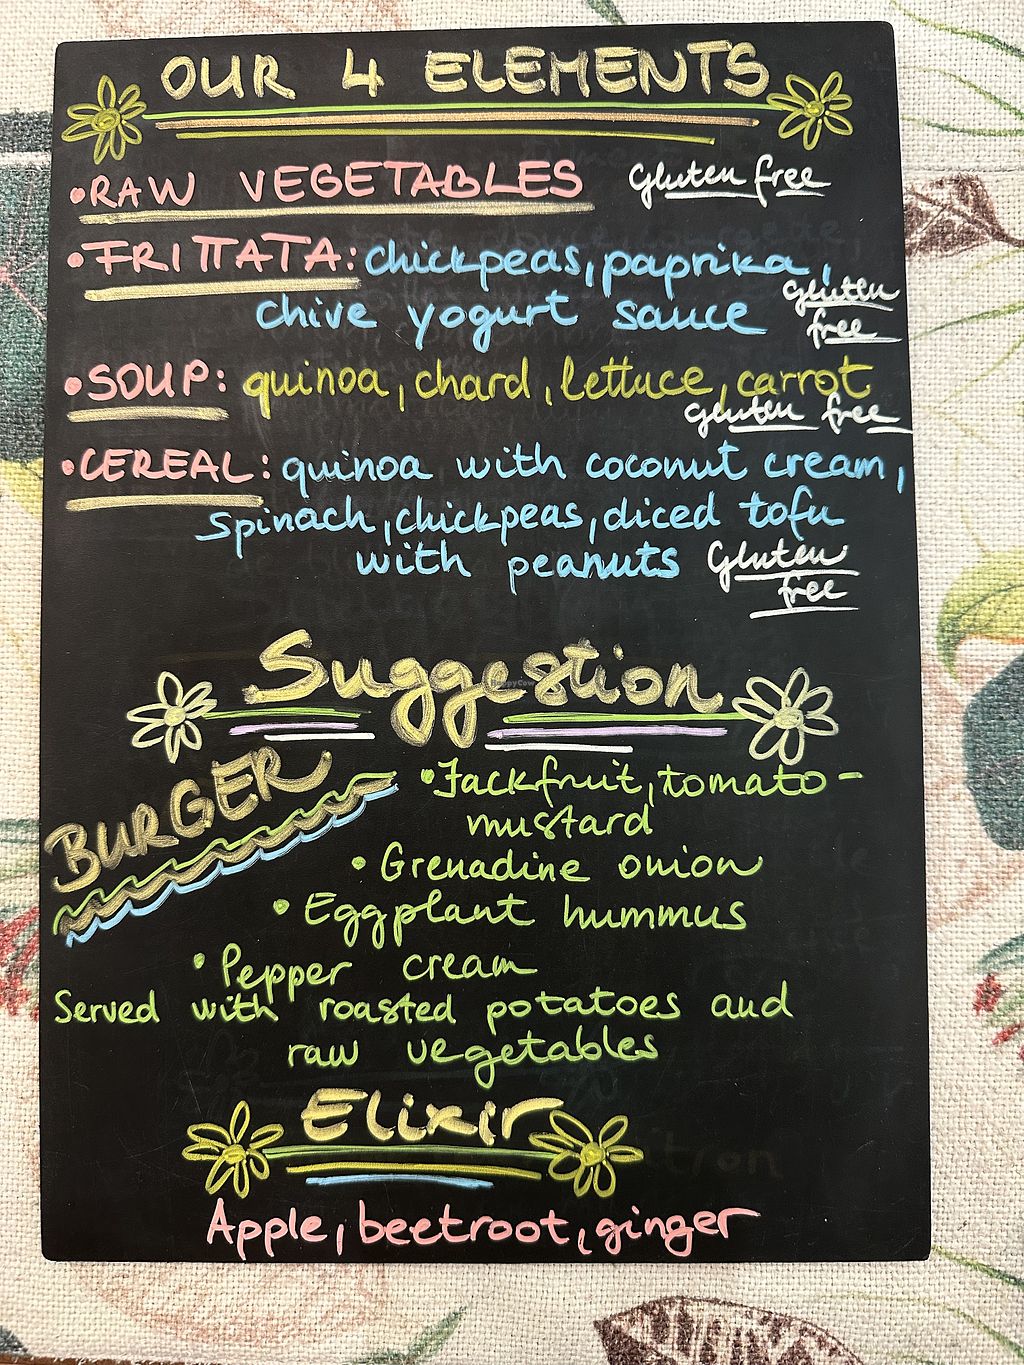 OUR 4 ELEMENTS
•RAW VEGETABLES Gluten free
•FRITTATA: chickpeas, paprika,
chive yogurt sauce gluten free
•SOUP: quinoa, chard, lettuce, carrot
gluten free
•CEREAL: quinoa with coconut cream,
Spinach, chickpeas, diced tofu
with peanuts Gluten free
Suggestion
BURGER
•Jackfruit, tomato-
mustard
•Grenadine onion
•Eggplant hummus
•Pepper cream
Served with roasted potatoes and
raw vegetables
Elixir
Apple, beetroot, ginger